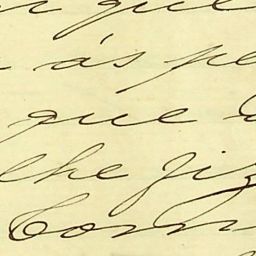 que
ás pe
que
lhe fiz
Com